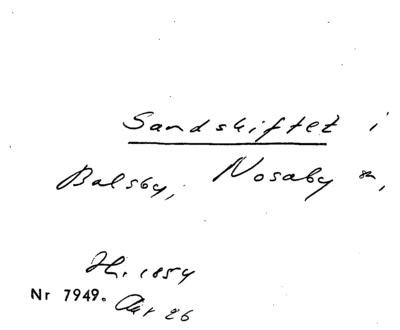 Sandskiftet i
Balsby, Nosaby sn,
1854
Nr 7949. Akt 26